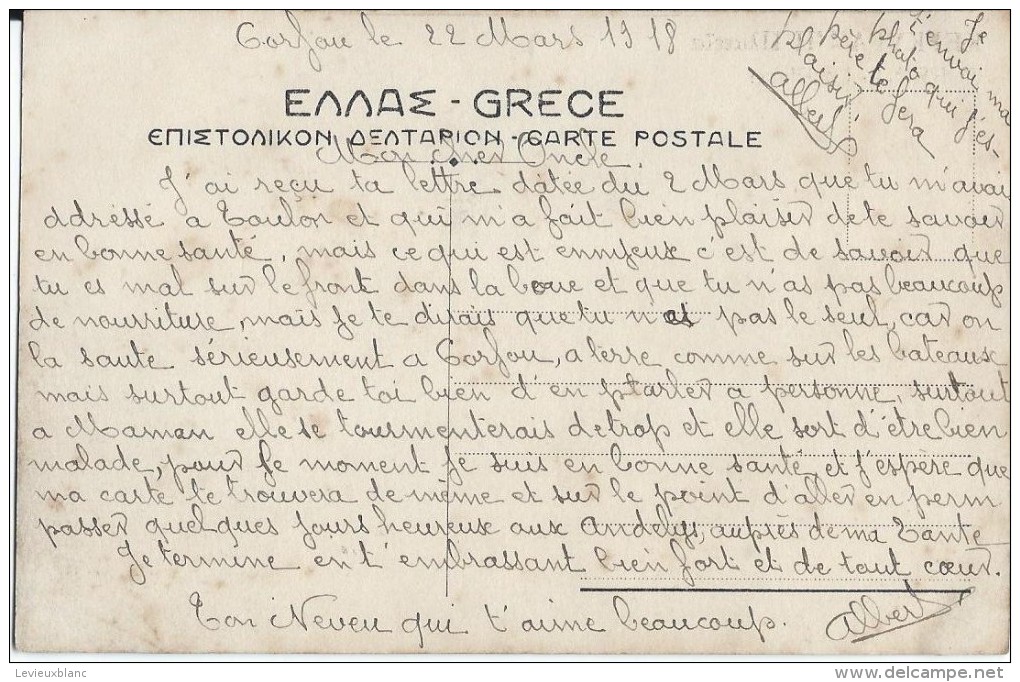 Corfou le 22 Mars 1918
ΕΛΛΑΣ - GRECE
ΕΠΙΣΤΟΛΙΚΟΝ ΔΕΛΤΑΡΙΟΝ - CARTE POSTALE
Mon cher Oncle
J'ai reçu ta lettre datée du 2 Mars que tu m'avai
adressé a Toulon et qui m'a fait bien plaisir de te savoir
en bonne santé, mais ce qui est ennyeux c'est de savoir que
tu es mal sur le front dans la boue et que tu n'as pas beaucoup
de nourriture, mais je te dirais que tu n'es pas le seul, car on
la saute sérieusement a Corfou, a terre comme sur les bateaux
mais surtout garde toi bien d'en parler a personne, surtout
a Maman elle se tourmenterais de trop et elle sort d'être bien
malade, pour le moment je suis en bonne santé et j'espère que
ma carte te trouvera de même et sur le point d'aller en perm
passer quelques jours heureux aux Andelys, auprès de ma Tante
Je termine en t'embrassant bien fort et de tout cœur.
Ton Neveu qui t'aime beaucoup.
Albert
Je
t'envoi ma
photo qui j'es-
père te fera
plaisir
Albert
Levieuxblanc
www.delcampe.net